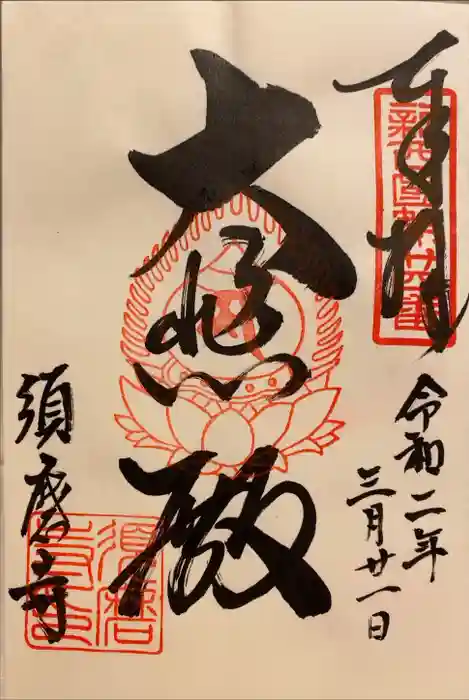 奉拝
令和二年
三月廿一日
大悲殿
須磨寺
須磨
寺印